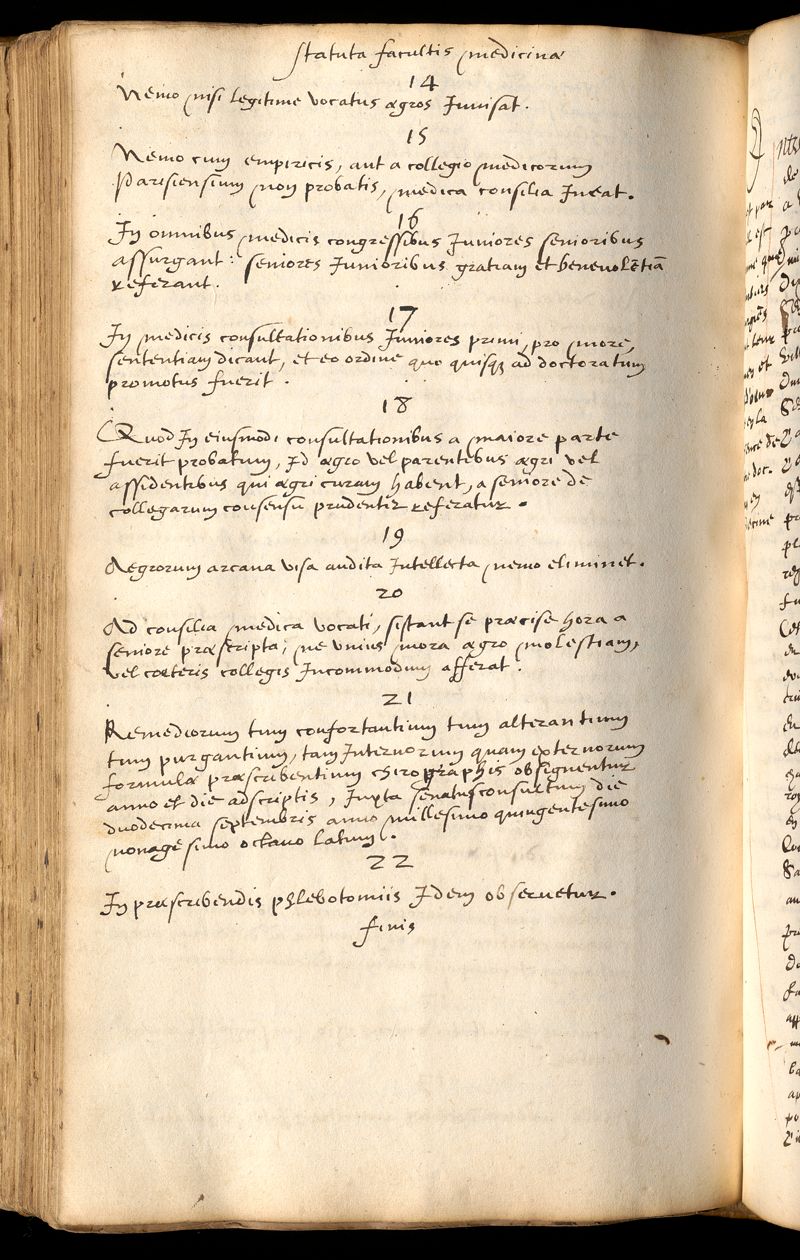 Statuta facultis medicinæ
14
Nemo nisi legitime vocatus ægros Inuisat.
15
Nemo cum empiricis, aut a collegio medicorum
Parisiensium non probatis, medica consilia Ineat.
16
In omnibus medicis congressibus Juniores senioribus
assurgant: seniores Junioribus gratiam et beneuolētiā
referant.
17
In medicis consultationibus Juniores primi, pro more,
sententiam dicant, et eo ordine quo quisqȝ ad doctoratum
promotus fuerit.
18
Quod In eiusmodi consultationibus a maiore parte
fuerit probatum, Id ægro vel parentibus ægri vel
assidentibus qui ægri curam habent, a seniore de
collegarum consensu prudentir referatur.
19
Aegrorum arcana visa audita Intellecta nemo eliminet.
20
Ad consilia medica vocati, sistant se præcise hora a
seniore præscripta, ne vnius mora ægro molestiam,
vel cæteris collegis Incommodum afferat.
21
Remediorum tum confortantium tum alterantium
tum purgantium, tam Internorum quam externorum
formulæ præscribentium chirographis obsignentur
anno et die adscriptis, Juxta senatusconsultum die
duodecima septembris anno millesimo quingentesimo
nonagesimo octauo latum.
22
In præscribendis phlebotomiis Idem obseruetur.
finis